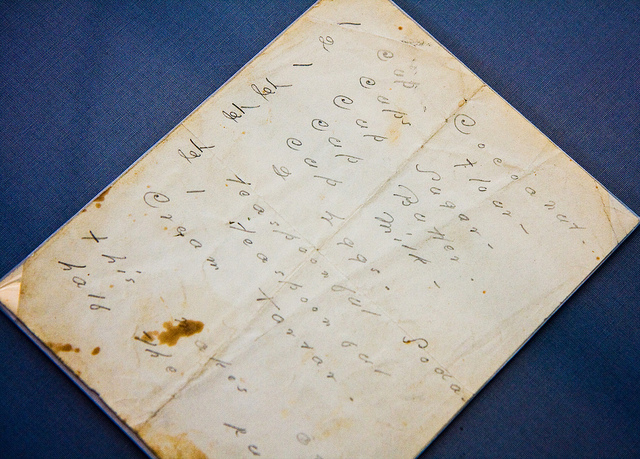 1 Cup Cocoanut..
2 Cups Flour -
1 Cup Sugar -
1/2 Cup Butter..
1/2 Cup Milk -
2 Eggs -
1/2 teaspoonful Soda
1 teaspoonful
Cream Tartar.
This makes
half the